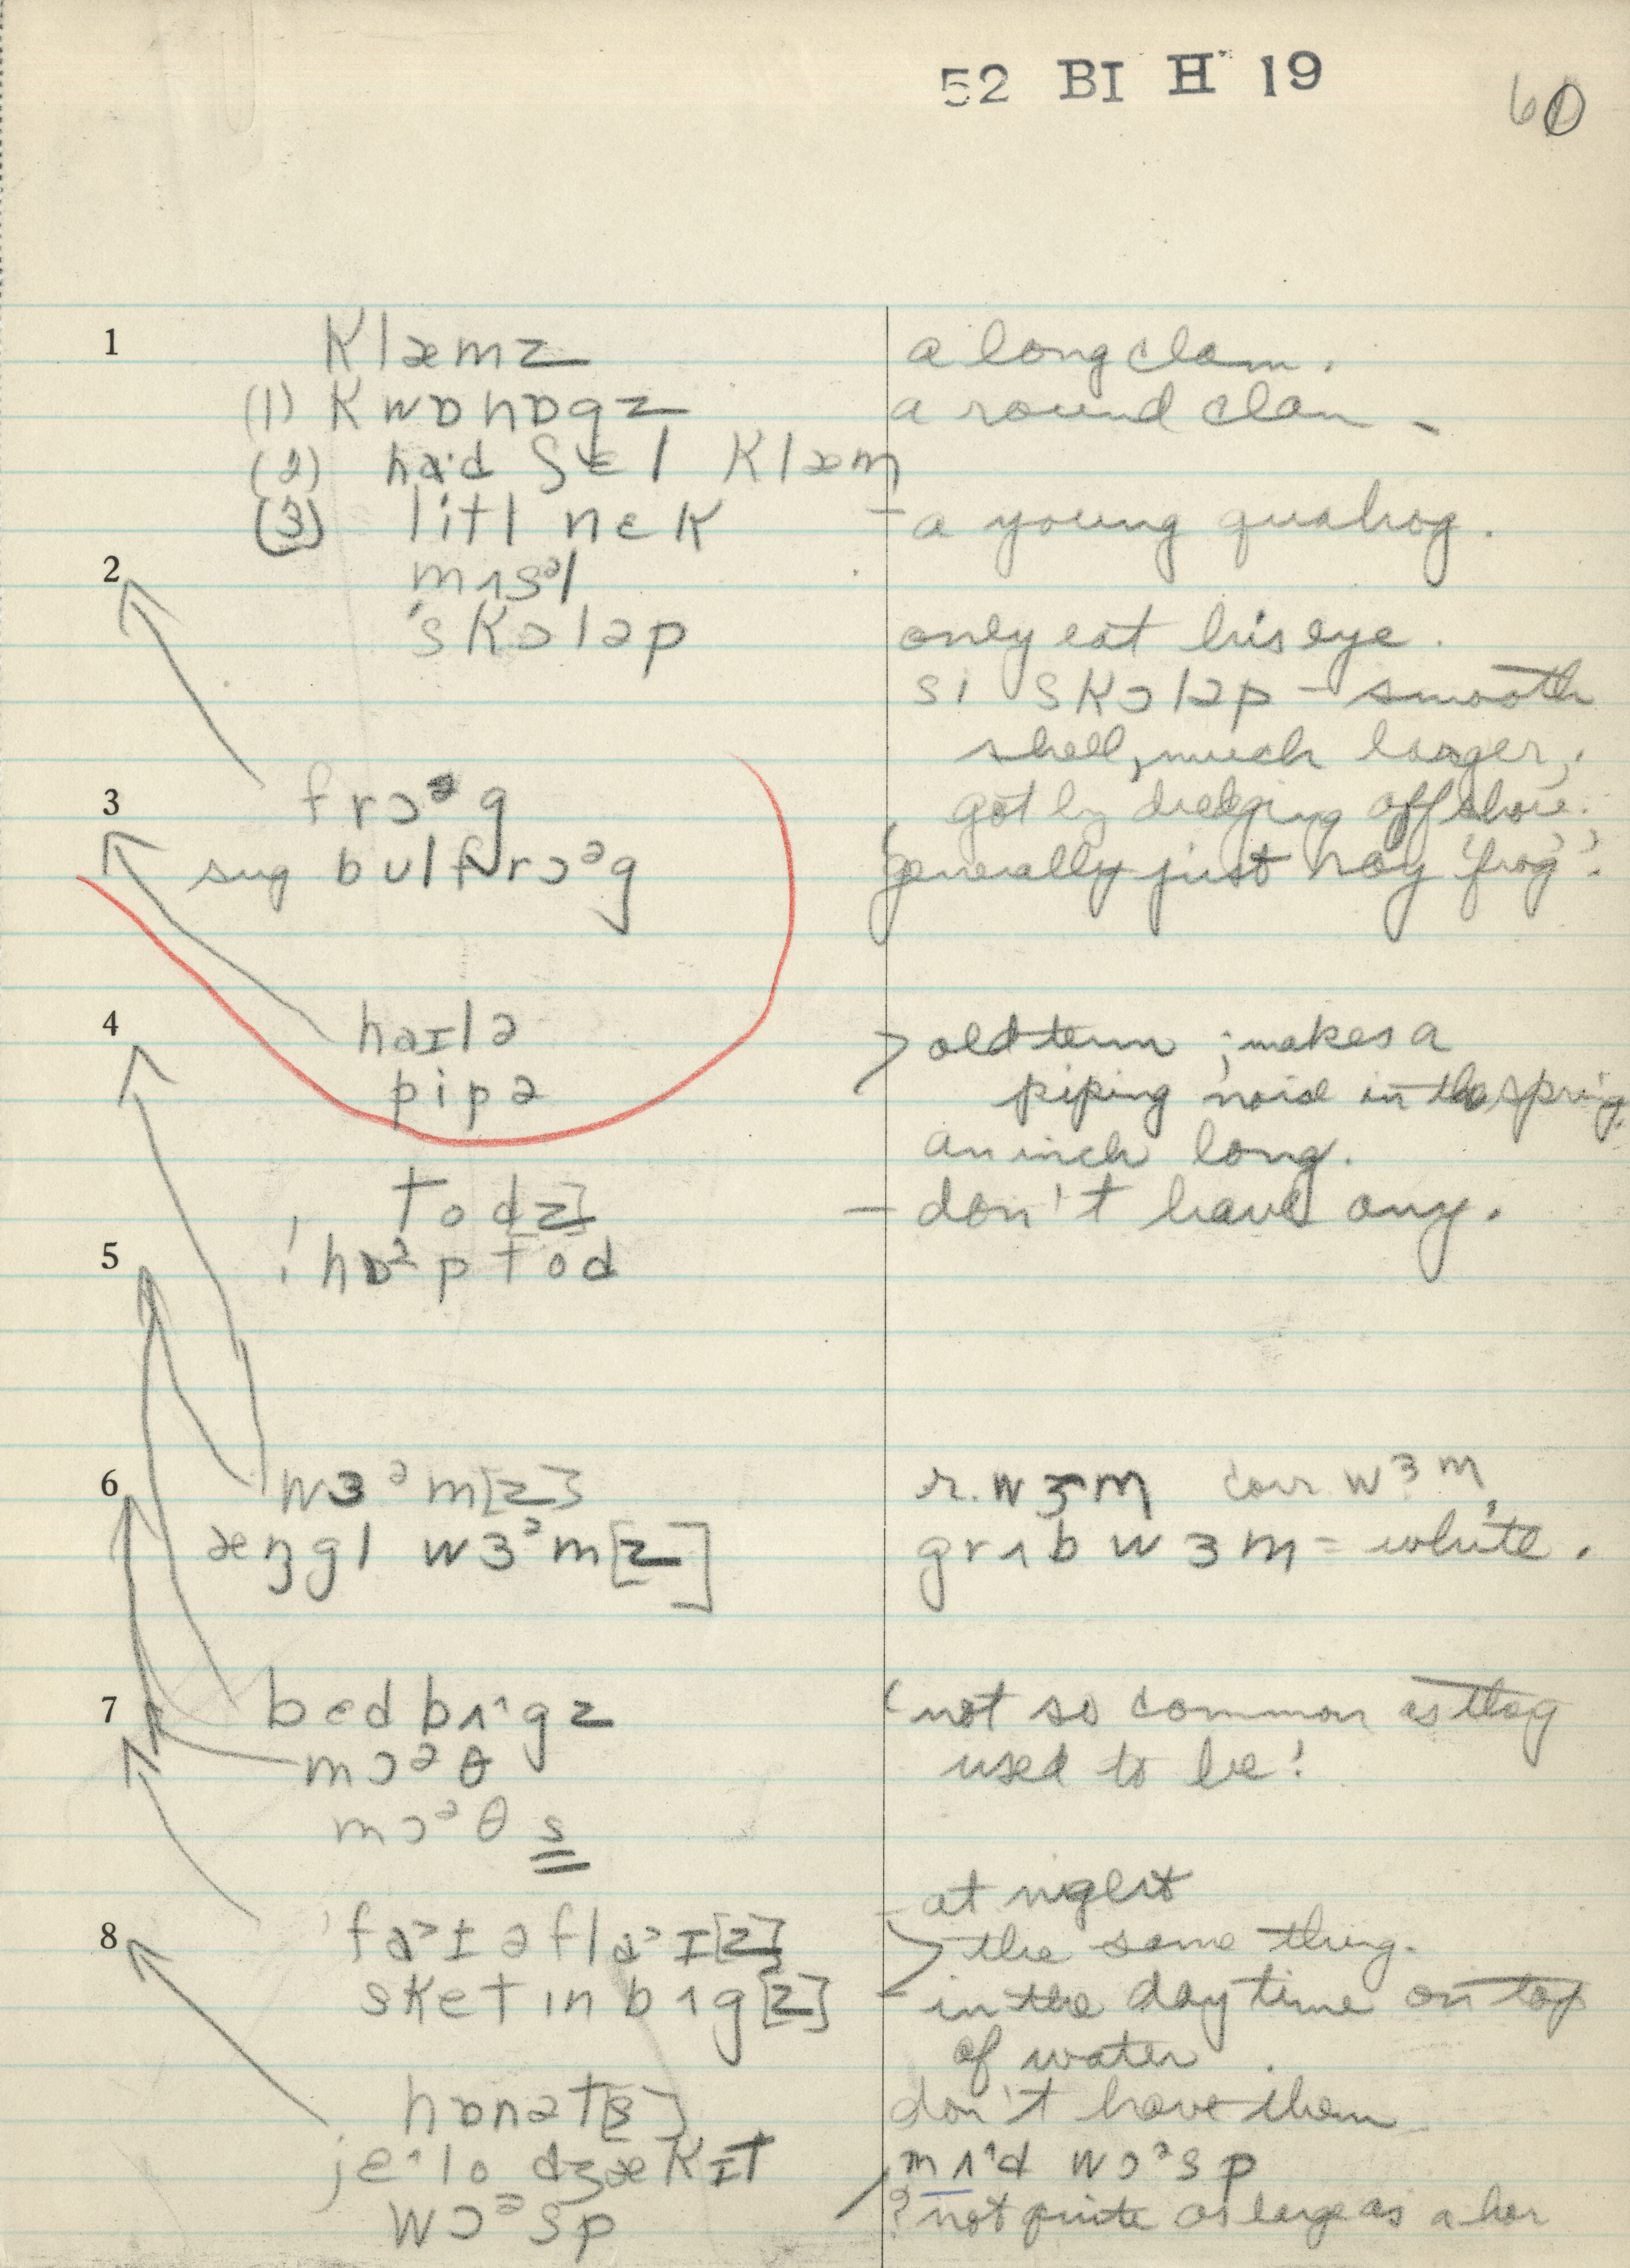 52 BI H 19
60
1 klæmz a long clam.
(1) kwɒhɒgz a round clam –
(2) ha·d ʃɛl klæm
(3) litl nɛk – a young quahog.
2 mʌsᵊl
'skɔləp only eat his eye.
si skɔləp – smooth
shell, much larger,
got by dredging off shore.
3 frɔᵊg
sug bulfrɔᵊg generally just say 'frog'.
4 haɪlə > old term ; makes a
pipə piping noise in the spring.
an inch long.
tod[z] – don't have any.
5 ! hɒᵊptod
6 wɜᵊm[z] r. wɜm corr. wɜm,
æŋgl wɜᵊm[z] grʌb wɜm = white.
7 bedbʌ^gz (not so common as they
mɔᵊθ used to be!
mɔᵊθs
– at night
8 faᵊɪəflaᵊɪ[z] > the same thing.
sketinbʌg[z] – in the day time on top
of water.
hɒnət[s] don't have them
je^lo dʒækɪt mʌ^d wɔᵊsp
wɔᵊsp ? not quite as large as a hor